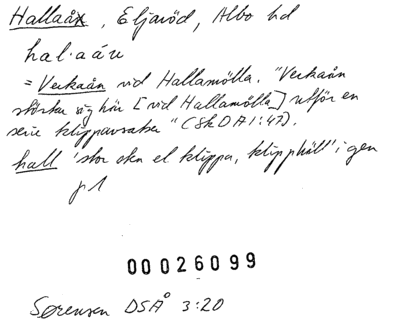 Hallaån, Eljaröd, Albo hd
hal·aár
= Verkaån vid Hallamölla. "Verkaån
störtar sig här [vid Hallamölla] utför en
serie klippavsatser" (SkDA 1:42).
hall 'stor sten el klippa, klipphäll' i gen
pl
00026099
Sørensen DSÅ 3:20